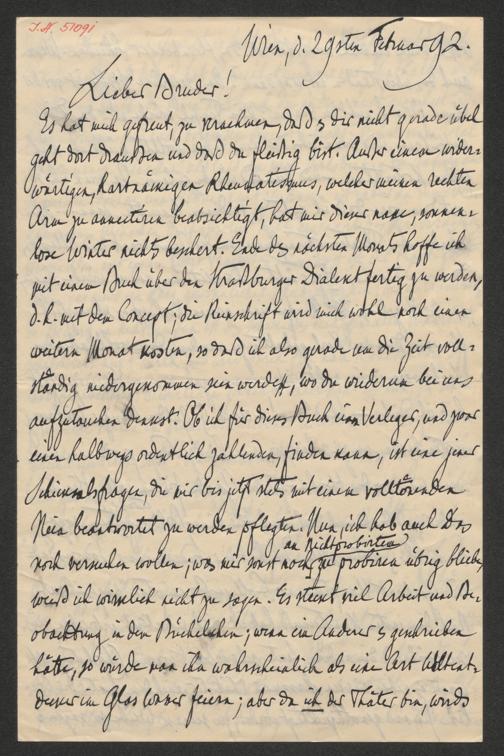 J.N. 51091
Wien, d. 29sten Februar 92.
Lieber Bruder!
Es hat mich gefreut, zu vernehmen, daß s dir nicht gerade übel
geht dort draußen und daß du fleißig bist. Außer einem wider-
wärtigen, hartnäckigen Rheumatismus, welcher meinen rechten
Arm zu annectiren beabsichtigt, hat mir dieser nasse, sonnen-
lose Winter nichts beschert. Ende des nächsten Monats hoffe ich
mit einem Buch über den Straßburger Dialekt fertig zu werden,
d. h. mit dem Concept; die Reinschrift wird mich wohl noch einen
weitern Monat kosten, so daß ich also gerade um die Zeit voll-
ständig niedergenommen sein werde, wo du wiederum bei uns
aufzutauchen denkst. Ob ich für dieses Buch einen Verleger, und zwar
einen halbwegs ordentlich zahlenden, finden kann, ist eine jener
Schicksalsfragen, die mir bis jetzt stets mit einem volltönenden
Nein beantwortet zu werden pflegten. Nun, ich hab auch das
noch versuchen wollen; was mir sonst noch an Nichtprobirtem zu probiren übrig bliebe,
weiß ich wirklich nicht zu sagen. Es steckt viel Arbeit und Be-
obachtung in dem Büchelchen; wenn ein Anderer s geschrieben
hätte, so würde man ihn wahrscheinlich als eine Art
im Glas Wasser feiern; aber da ich der Thäter bin, wirds